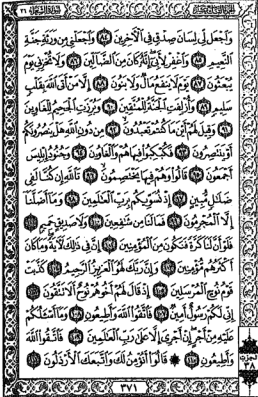 وَاجْعَل لِّي لِسَانَ صِدْقٍ فِي الْآخِرِينَ ٨٤ وَاجْعَلْنِي مِن وَرَثَةِ جَنَّةِ
النَّعِيمِ ٨٥ وَاغْفِرْ لِأَبِي إِنَّهُ كَانَ مِنَ الضَّالِّينَ ٨٦ وَلَا تُخْزِنِي يَوْمَ
يُبْعَثُونَ ٨٧ يَوْمَ لَا يَنفَعُ مَالٌ وَلَا بَنُونَ ٨٨ إِلَّا مَنْ أَتَى اللَّهَ بِقَلْبٍ
سَلِيمٍ ٨٩ وَأُزْلِفَتِ الْجَنَّةُ لِلْمُتَّقِينَ ٩٠ وَبُرِّزَتِ الْجَحِيمُ لِلْغَاوِينَ
٩١ وَقِيلَ لَهُمْ أَيْنَ مَا كُنتُمْ تَعْبُدُونَ ٩٢ مِن دُونِ اللَّهِ هَلْ يَنصُرُونَكُمْ
أَوْ يَنتَصِرُونَ ٩٣ فَكُبْكِبُوا فِيهَا هُمْ وَالْغَاوُونَ ٩٤ وَجُنُودُ إِبْلِيسَ
أَجْمَعُونَ ٩٥ قَالُوا وَهُمْ فِيهَا يَخْتَصِمُونَ ٩٦ تَاللَّهِ إِن كُنَّا لَفِي
ضَلَالٍ مُّبِينٍ ٩٧ إِذْ نُسَوِّيكُم بِرَبِّ الْعَالَمِينَ ٩٨ وَمَا أَضَلَّنَا
إِلَّا الْمُجْرِمُونَ ٩٩ فَمَا لَنَا مِن شَافِعِينَ ١٠٠ وَلَا صَدِيقٍ حَمِيمٍ ١٠١
فَلَوْ أَنَّ لَنَا كَرَّةً فَنَكُونَ مِنَ الْمُؤْمِنِينَ ١٠٢ إِنَّ فِي ذَٰلِكَ لَآيَةً وَمَا كَانَ
أَكْثَرُهُم مُّؤْمِنِينَ ١٠٣ وَإِنَّ رَبَّكَ لَهُوَ الْعَزِيزُ الرَّحِيمُ ١٠٤ كَذَّبَتْ
قَوْمُ نُوحٍ الْمُرْسَلِينَ ١٠٥ إِذْ قَالَ لَهُمْ أَخُوهُمْ نُوحٌ أَلَا تَتَّقُونَ ١٠٦
إِنِّي لَكُمْ رَسُولٌ أَمِينٌ ١٠٧ فَاتَّقُوا اللَّهَ وَأَطِيعُونِ ١٠٨ وَمَا أَسْأَلُكُمْ
عَلَيْهِ مِنْ أَجْرٍ إِنْ أَجْرِيَ إِلَّا عَلَىٰ رَبِّ الْعَالَمِينَ ١٠٩ فَاتَّقُوا اللَّهَ
وَأَطِيعُونِ ١١٠ ۞ قَالُوا أَنُؤْمِنُ لَكَ وَاتَّبَعَكَ الْأَرْذَلُونَ ١١١
الحزب
٣٨
٣٧١